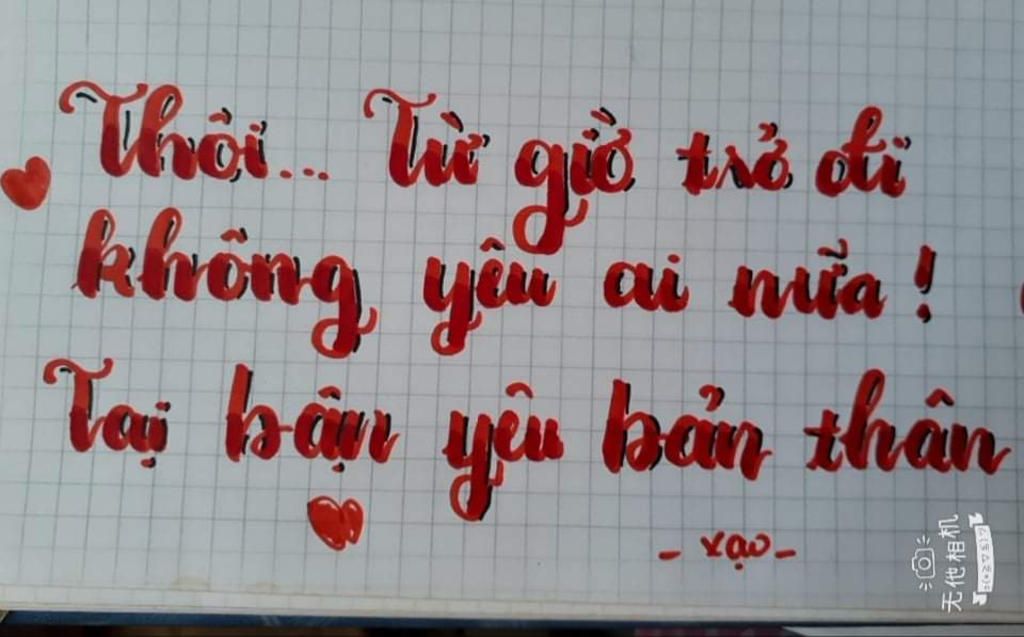 Thôi... Từ giờ trở đi
không yêu ai nữa!
Tại bận yêu bản thân
- xạo -
无他相机